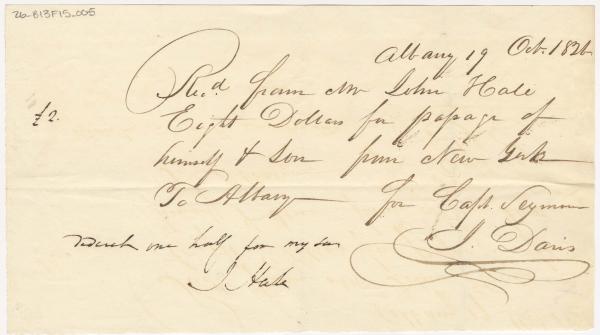 26-B13F15_005
Albany 19 Oct. 1826
Rec.d from Mr John Hale
£2. Eight Dollars for passage of
himself & Son from New York
To Albany for Capt. Seymour
J. Davis
one half for my son
J Hale